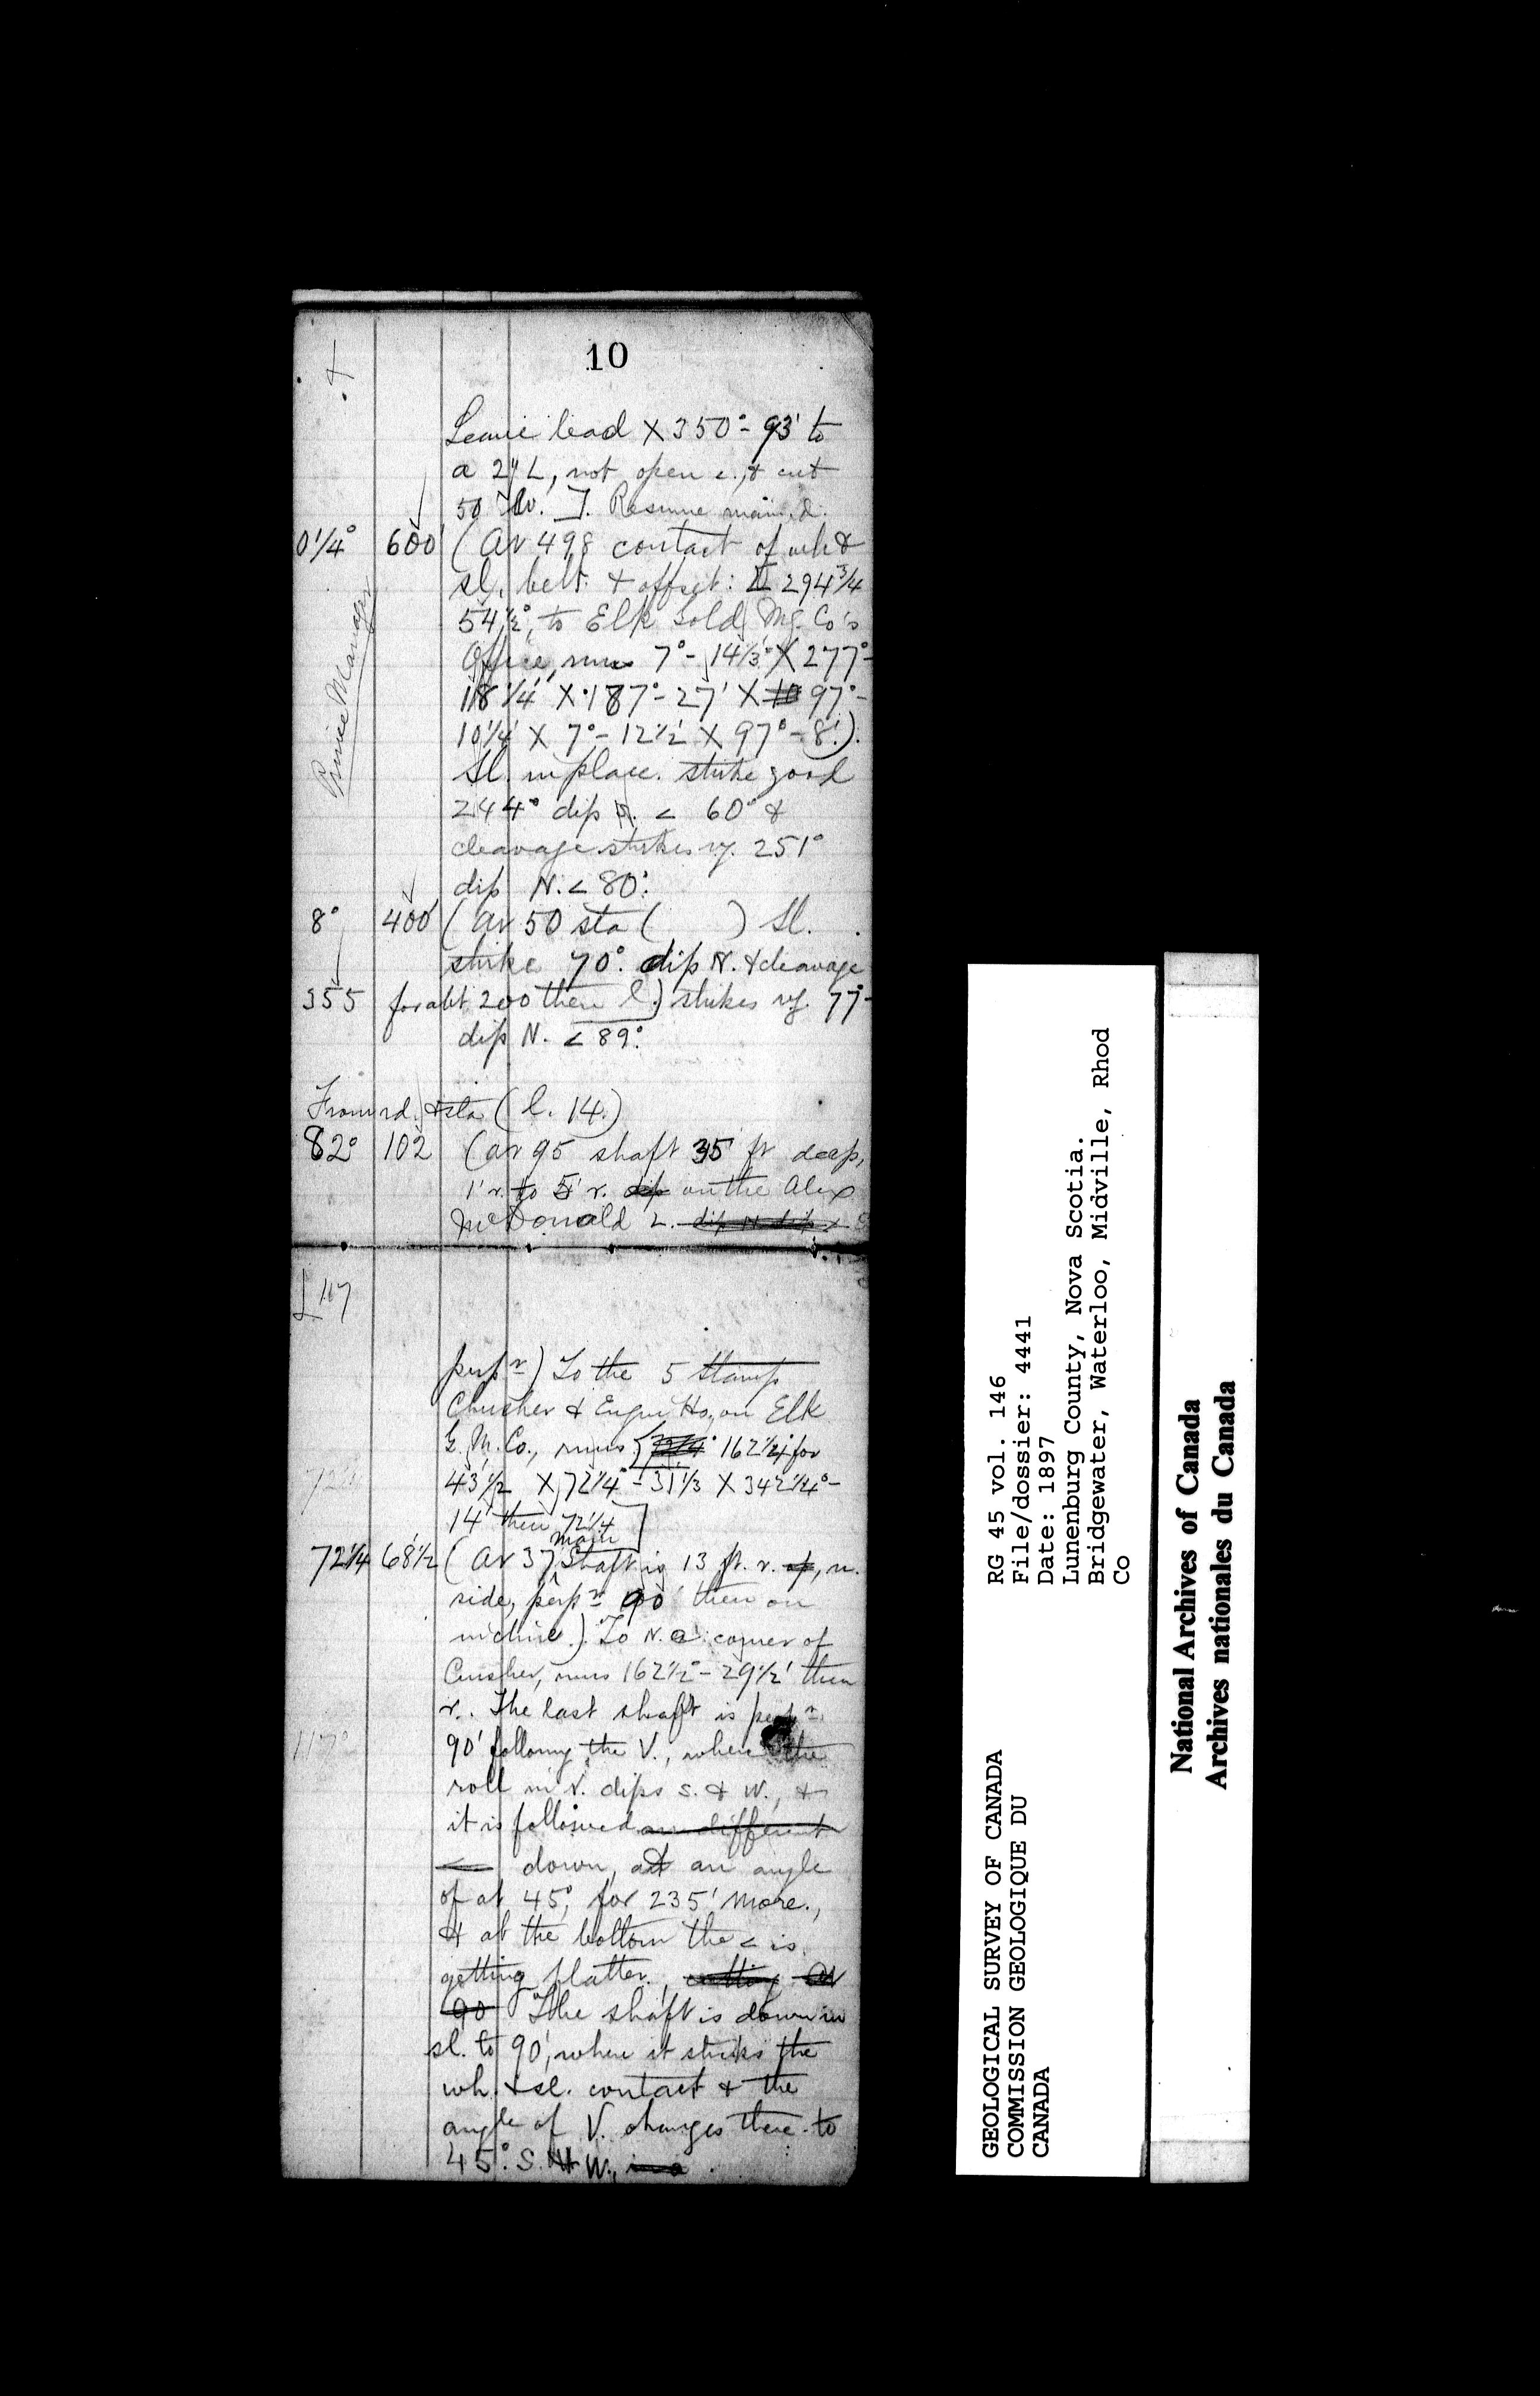 10
Leave lead X 350° - 93' to
a 2" L, not open e., & cut
50' W. ]. Resume main rd.
0 1/4° 600' (At 498 contact of wh &
sl. belt & offset: 294 3/4
54 1/2°, to Elk Gold Mg. Co's
Office, runs 7° - 14 1/3' X 277° -
18 1/4' X 187° - 27' X 97° -
10 1/4' X 7° - 12 1/2' X 97° - 8').
Prince Manager
Sl. in place. strike good
244° dip N. < 60° &
cleavage strikes vy. 251°
dip N. < 80°.
8° 400' (At 50 sta ( ) Sl.
strike 70°. dip N. & cleavage
355 for abt 200 then l.) strikes vy. 77° -
dip N. < 89°.
From rd. & sta (l. 14.)
82° 102 (at 95 shaft 35 ft deep,
1' r. to 5' r. dip on the Alex
McDonald L. dip N dip <
L 117
perpr) To the 5 Stamp
Crusher & Engin Ho, on Elk
G. M. Co., runs 72 1/4° 162 1/4° for
43 1/2 X 72 1/4° - 31 1/3 X 342 1/4° -
14' then 72 1/4 ]
72 1/4 68 1/2 (At 37 main Shaft is 13 ft. r. of, n.
side, perpr 90' then on
incline.) To N. e. corner of
Crusher, runs 162 1/2° - 29 1/2' then
r. The last shaft is perpr
117°
90' following the V., where the
roll in V. dips S. & W., &
it is followed on different
< down, at an angle
of at 45°, for 235' more.,
& at the bottom the < is
getting flatter., cutting at
90 The shaft is down in
sl. to 90', where it strikes the
wh. & sl. contact & the
angle of V. changes there to
45°. S. & W.,
RG 45 vol. 146
File/dossier: 4441
Date: 1897
Lunenburg County, Nova Scotia.
Bridgewater, Waterloo, Midville, Rhod
Co
GEOLOGICAL SURVEY OF CANADA
COMMISSION GEOLOGIQUE DU
CANADA
National Archives of Canada
Archives nationales du Canada